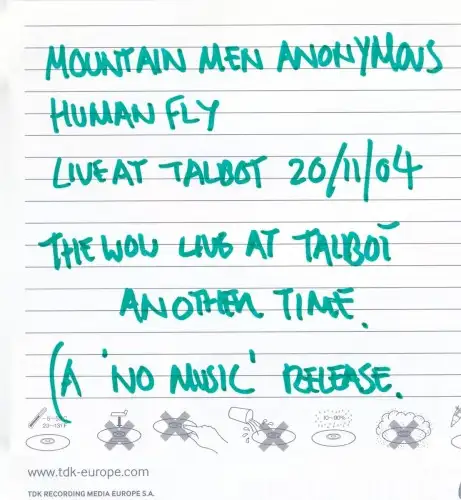 MOUNTAIN MEN ANONYMOUS
HUMAN FLY
LIVE AT TALBOT 20/11/04
THE WOW LIVE AT TALBOT
ANOTHER TIME.
(A 'NO MUSIC' RELEASE.
10-90%
www.tdk-europe.com
TDK RECORDING MEDIA EUROPE S.A.